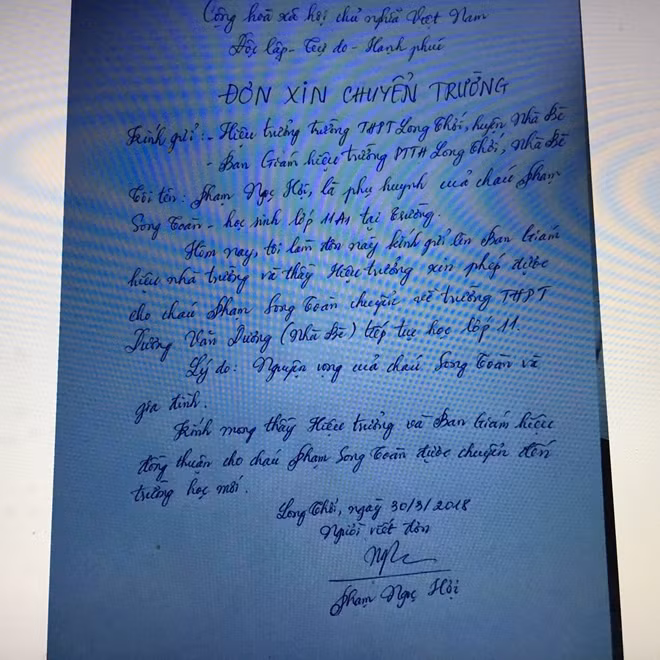 Cộng hoà xã hội chủ nghĩa Việt Nam
Độc lập - Tự do - Hạnh phúc
ĐƠN XIN CHUYỂN TRƯỜNG
Kính gửi: - Hiệu trưởng trường THPT Long Thới, huyện Nhà Bè
- Ban Giám hiệu trường PTTH Long Thới, Nhà Bè
Tôi tên: Phạm Ngọc Hội, là phụ huynh của cháu Phạm
Song Toàn - học sinh lớp 11A1 tại trường.
Hôm nay, tôi làm đơn này kính gửi lên Ban Giám
hiệu nhà trường và thầy Hiệu trưởng xin phép được
cho cháu Phạm Song Toàn chuyển về trường THPT
Dương Văn Dương (Nhà Bè) tiếp tục học lớp 11.
Lý do: Nguyện vọng của cháu Song Toàn và
gia đình.
Kính mong thầy Hiệu trưởng và Ban Giám hiệu
đồng thuận cho cháu Phạm Song Toàn được chuyển đến
trường học mới.
Long Thới, ngày 30/3/2018
Người viết đơn
Phạm Ngọc Hội